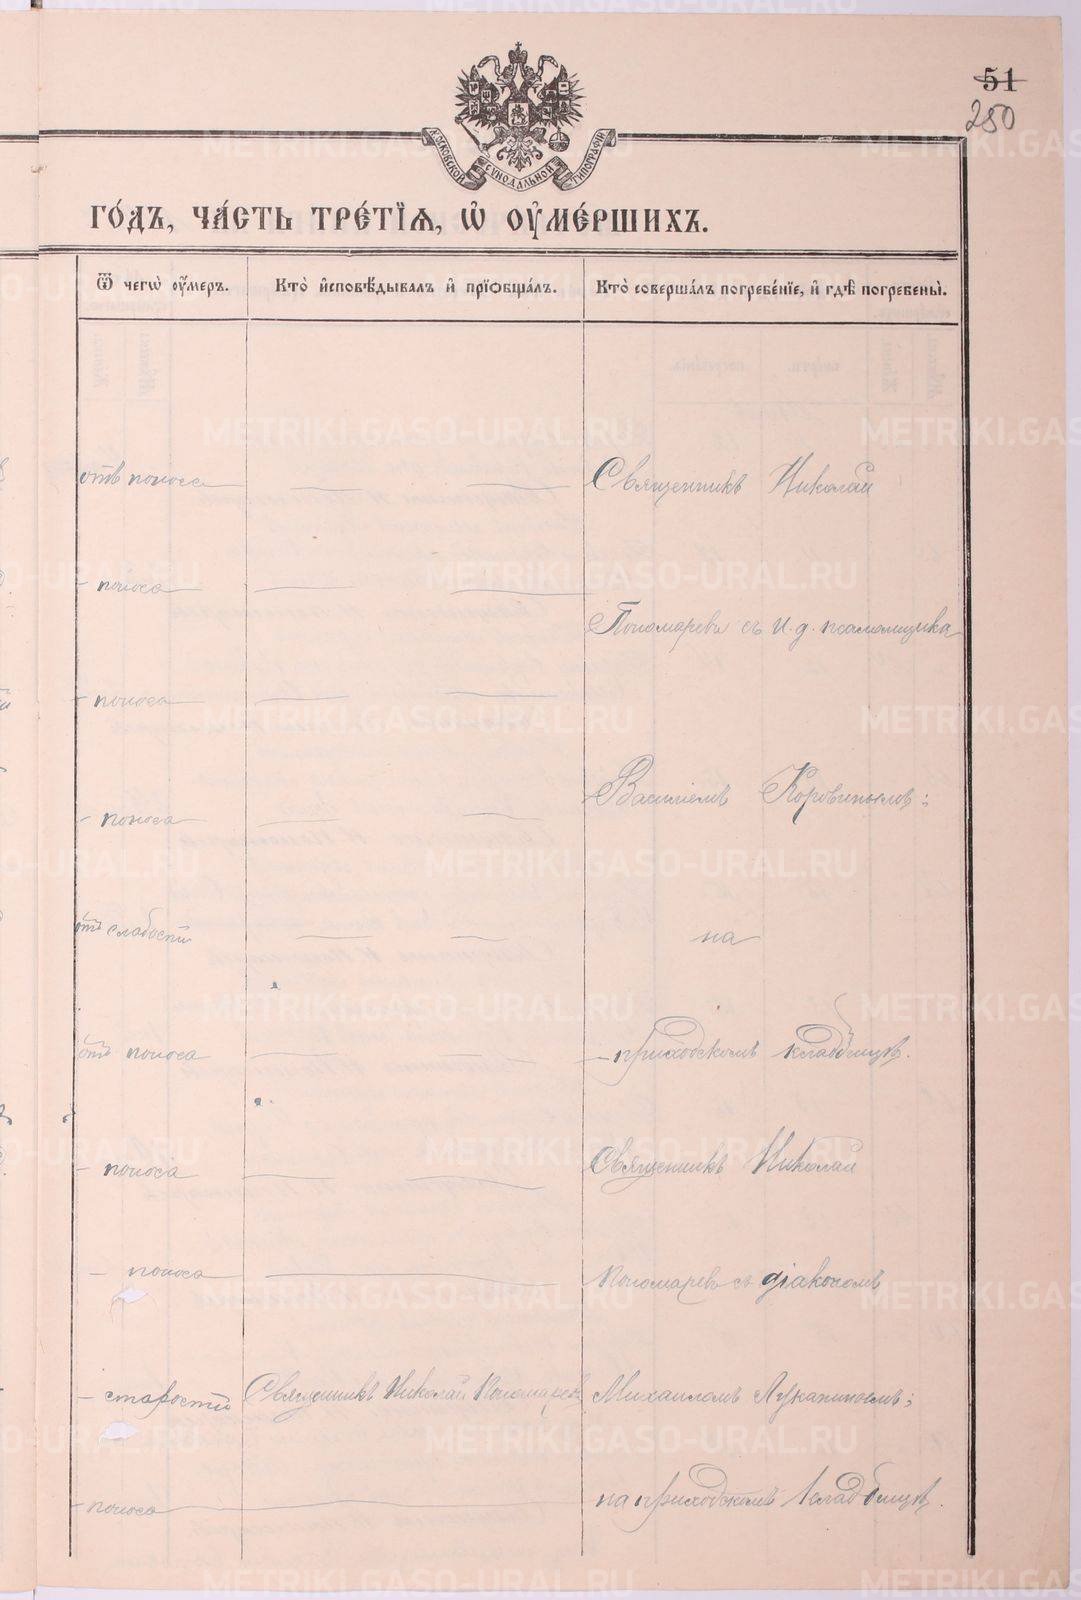 51
250
МОСКОВСКОЙ СѴНОДАЛЬНОЙ ТИПОГРАФІИ
ГО́ДЪ, ЧА́СТЬ ТРЕ́ТІѦ, Ѡ҆ ОУ҆МЕ́РШИХЪ.
Ѿ чегѡ̀ оу҆́меръ. Кто̀ и҆сповѣ́дывалъ и҆ прїѻбща́лъ. Кто̀ соверша́лъ погребе́нїе, и҆ гдѣ̀ погребены̀.
отъ поноса Священникъ Николай
- поноса
Пономаревъ съ и. д. псаломщика
- поноса
Василіемъ Коровинымъ;
- поноса
отъ слабости на
отъ поноса приходскомъ кладбищѣ.
- поноса Священникъ Николай
- поноса Пономаревъ съ діакономъ
- старости Священникъ Николай Пономаревъ Михаиломъ Луканинымъ;
- поноса на приходскомъ кладбищѣ.
METRIKI.GASO-URAL.RU